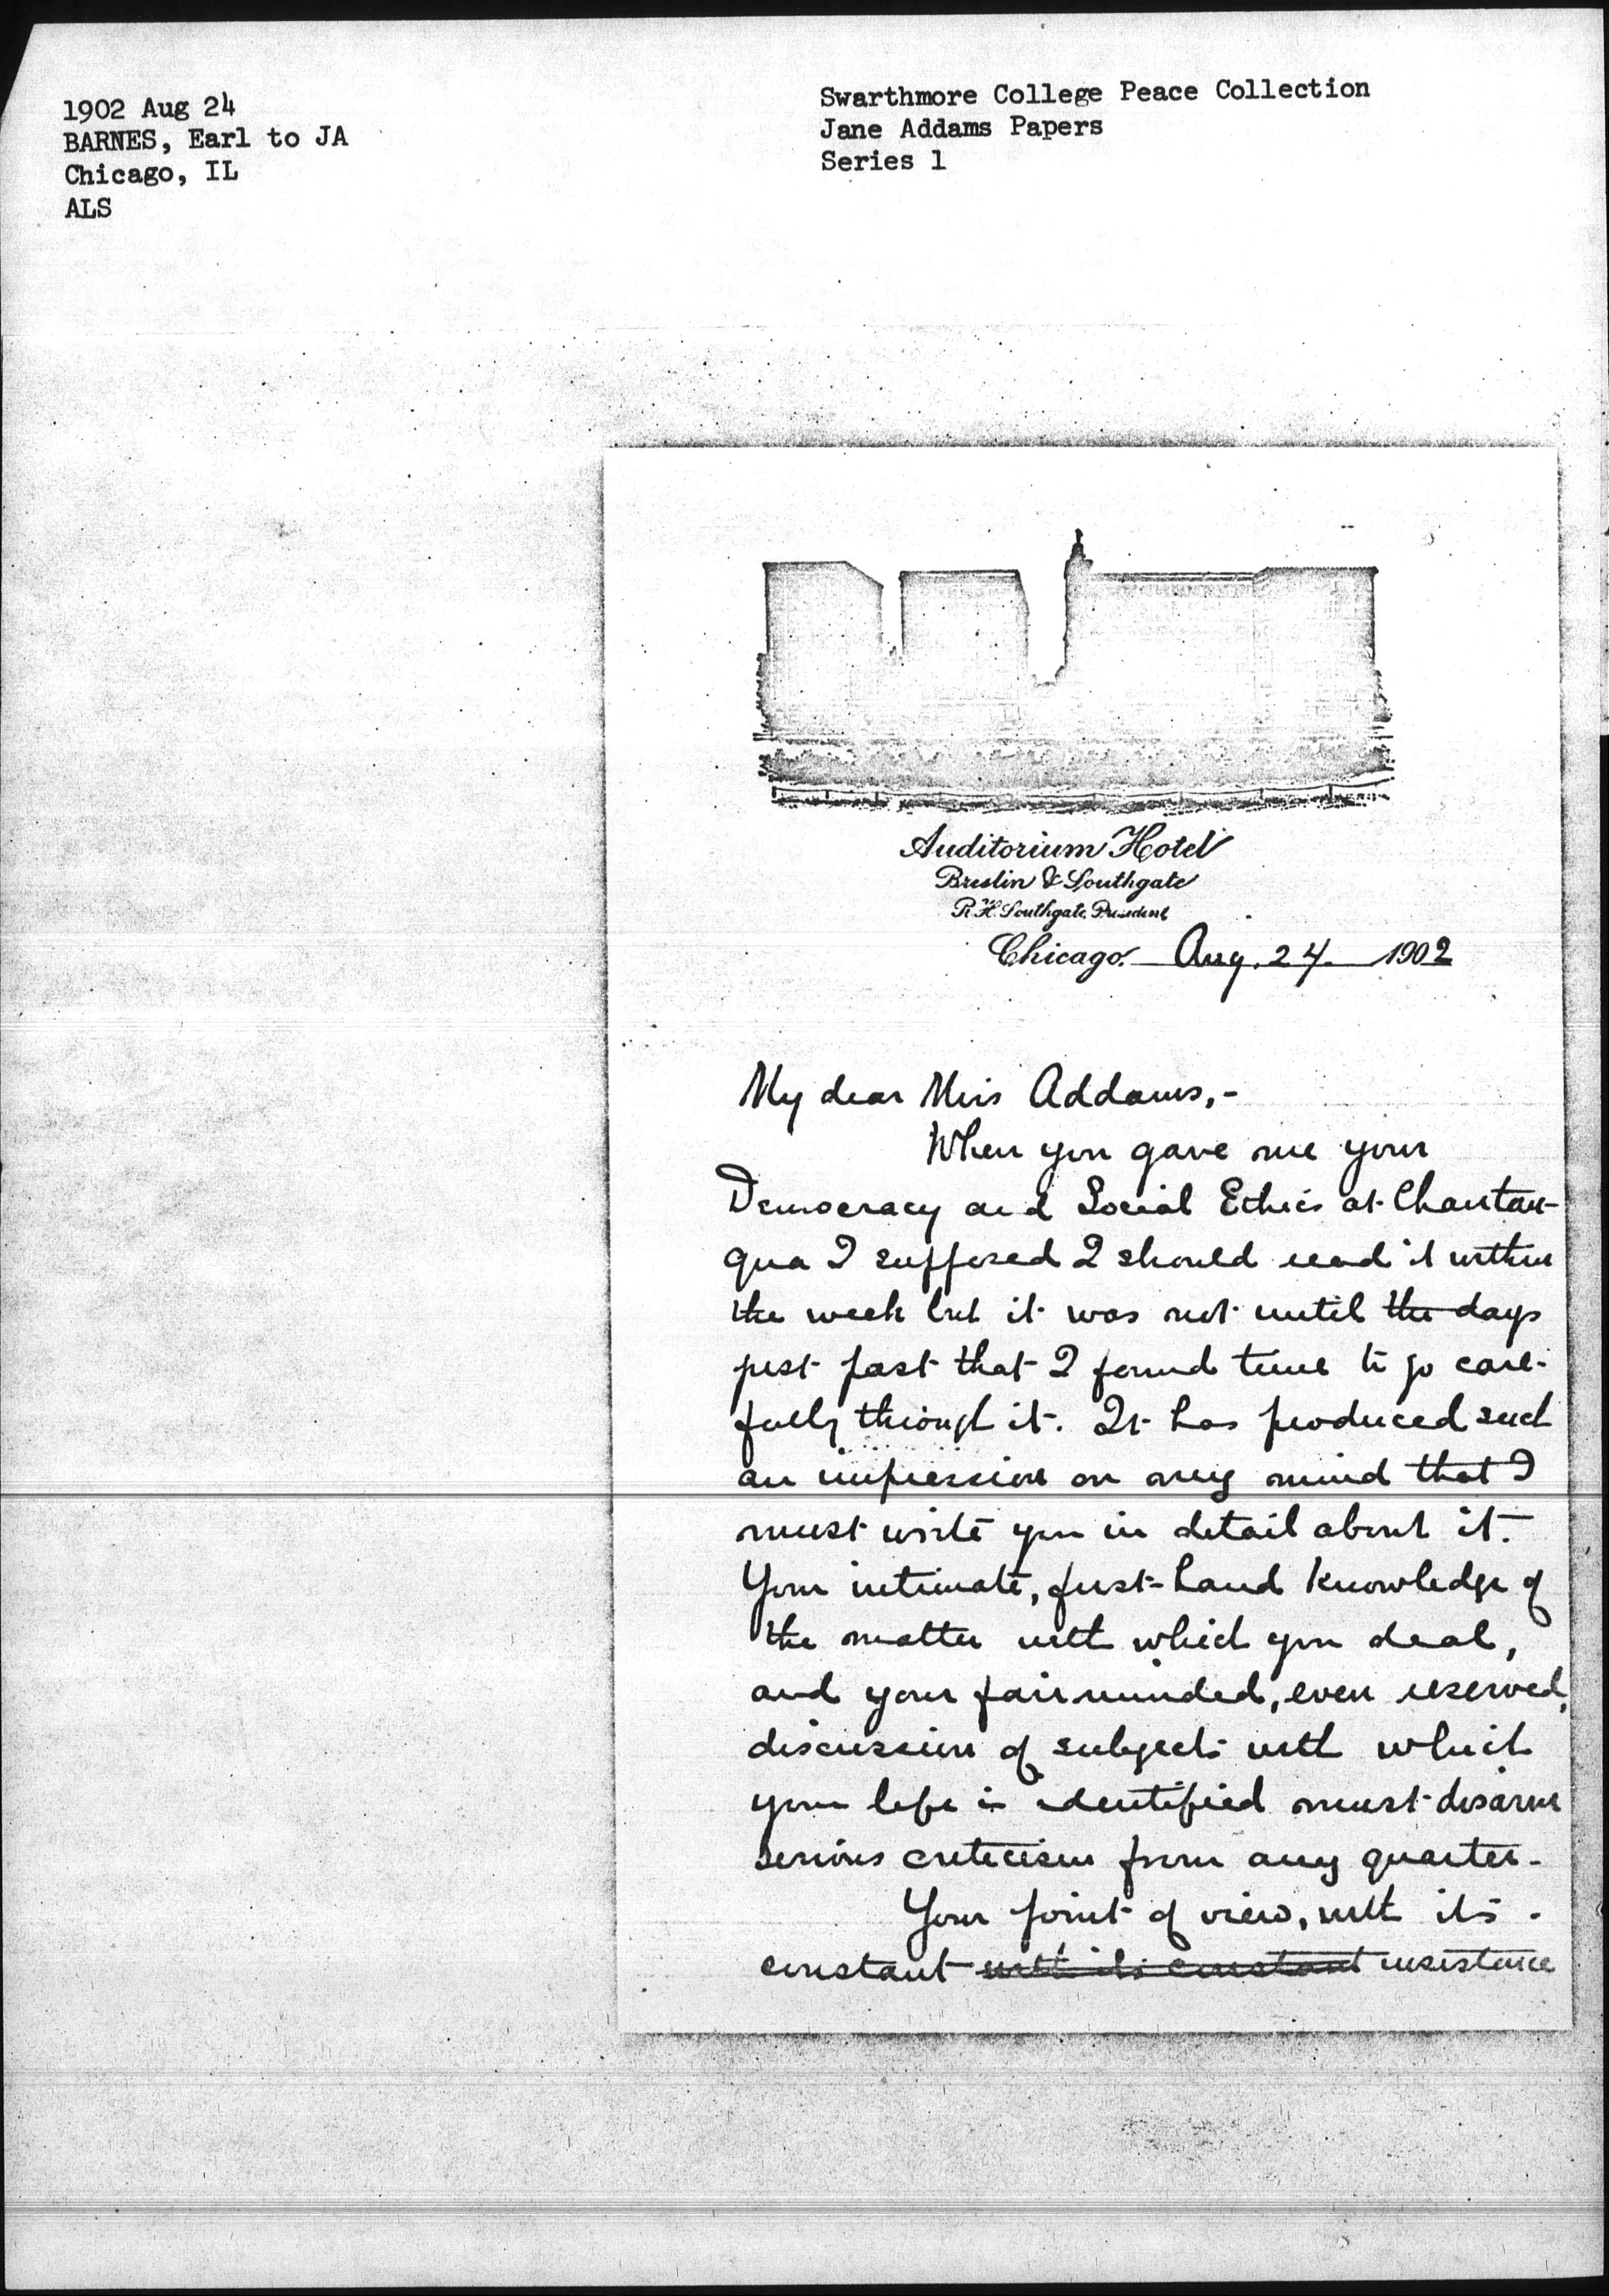 1902 Aug 24
BARNES, Earl to JA
Chicago, IL
ALS
Swarthmore College Peace Collection
Jane Addams Papers
Series 1
Auditorium Hotel
Breslin & Southgate
R.H. Southgate, President
Chicago. Aug. 24. 1902
My dear Miss Addams,-
When you gave me your
Democracy and Social Ethics at Chautau-
qua I supposed I should read it within
the week but it was not until the days
just past that I found time to go care-
fully through it. It has produced such
an impression on my mind that I
must write you in detail about it.
Your intimate, first-hand knowledge of
the matter with which you deal,
and your fair minded, even reserved,
discussion of subjects with which
your life is identified must disarm
serious criticism from any quarter.
Your point of view, with its
constant with its constant insistence